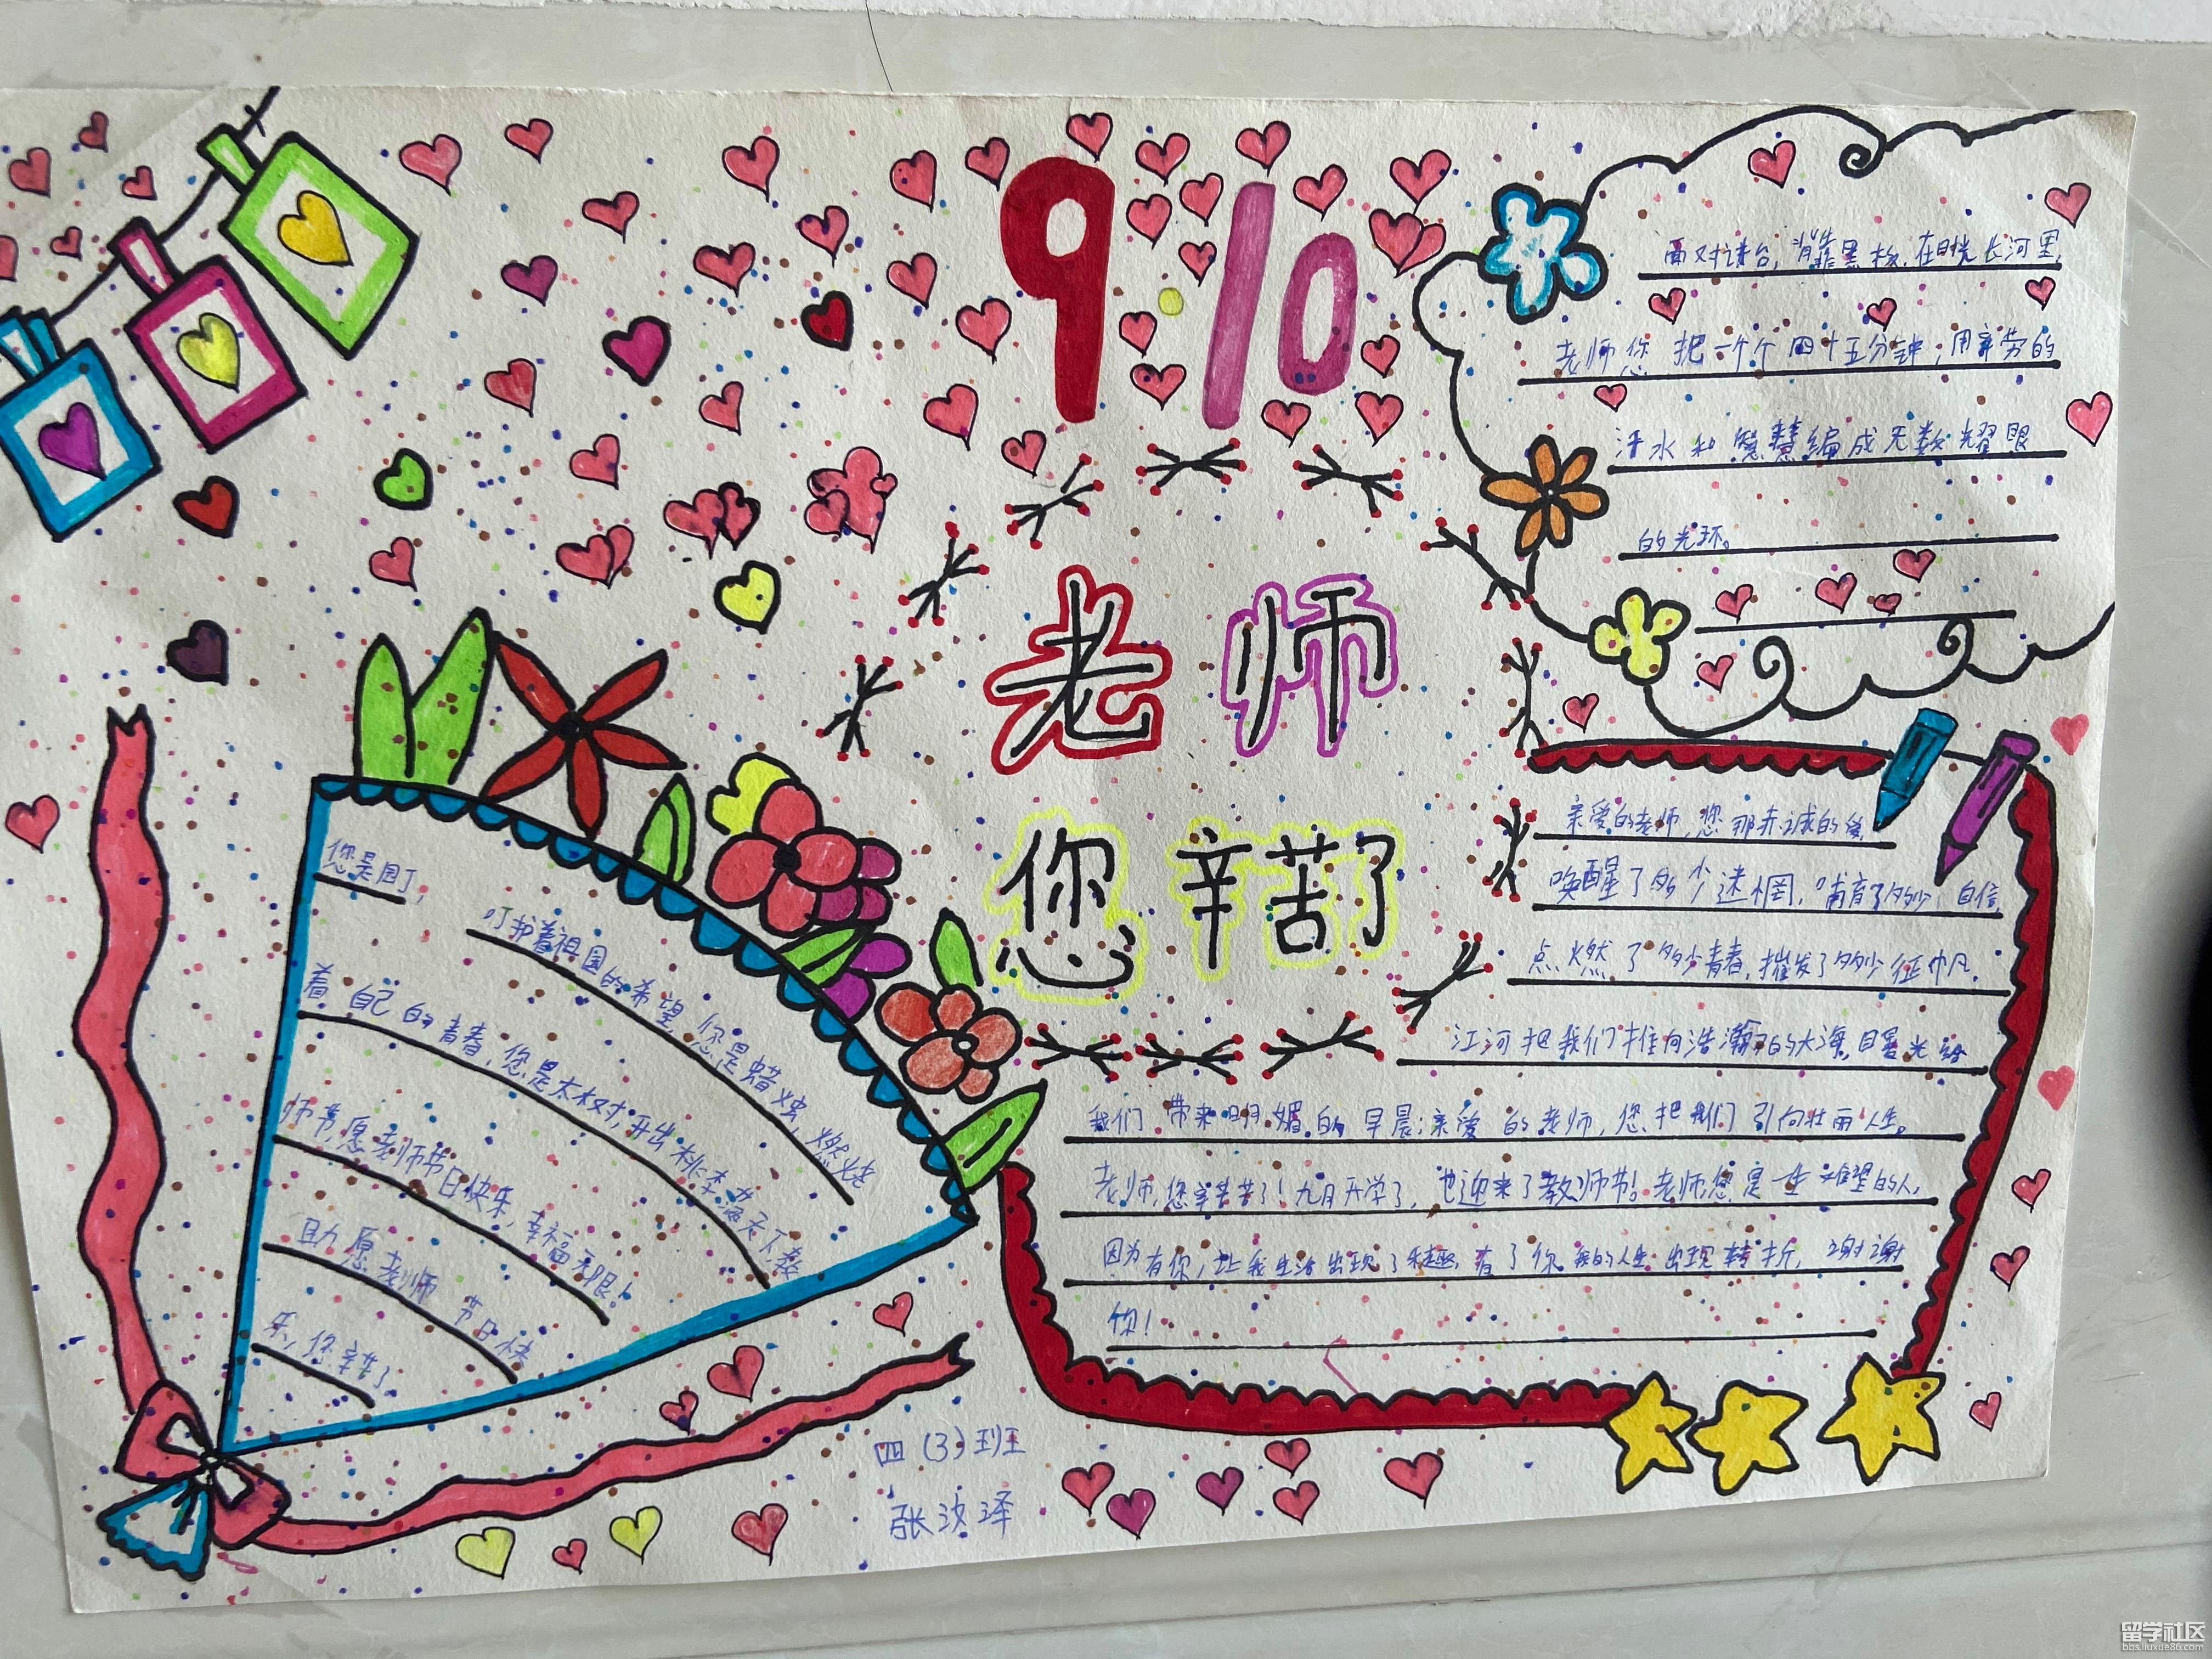 910
老师
您辛苦了
面对讲台，背靠黑板，在时光长河里，
老师您把一个个四十五分钟，用辛劳的
汗水和智慧编成无数耀眼
的光环。
亲爱的老师，您那赤诚的爱，
唤醒了多少迷惘，哺育了多少自信，
点燃了多少青春，摧发了多少征帆，
江河把我们推向浩瀚的大海，晨光给
我们带来明媚的早晨；亲爱的老师，您把我们引向壮丽人生。
老师，您辛苦了！九月开学了，也迎来了教师节！老师您是一生难望的人，
因为有你，让我生活出现了乐趣，有了你我的人生出现转折，谢谢
你！
您是园丁，
叮护着祖国的希望，您是蜡烛，燃烧
着自己的青春，您是大树，开出桃李为满天下，教
师节，愿老师节日快乐，幸福无限！
愿老师节日快
乐，您辛苦了
四（3）班
张汶泽
留学社区
bbs.liuxue86.com